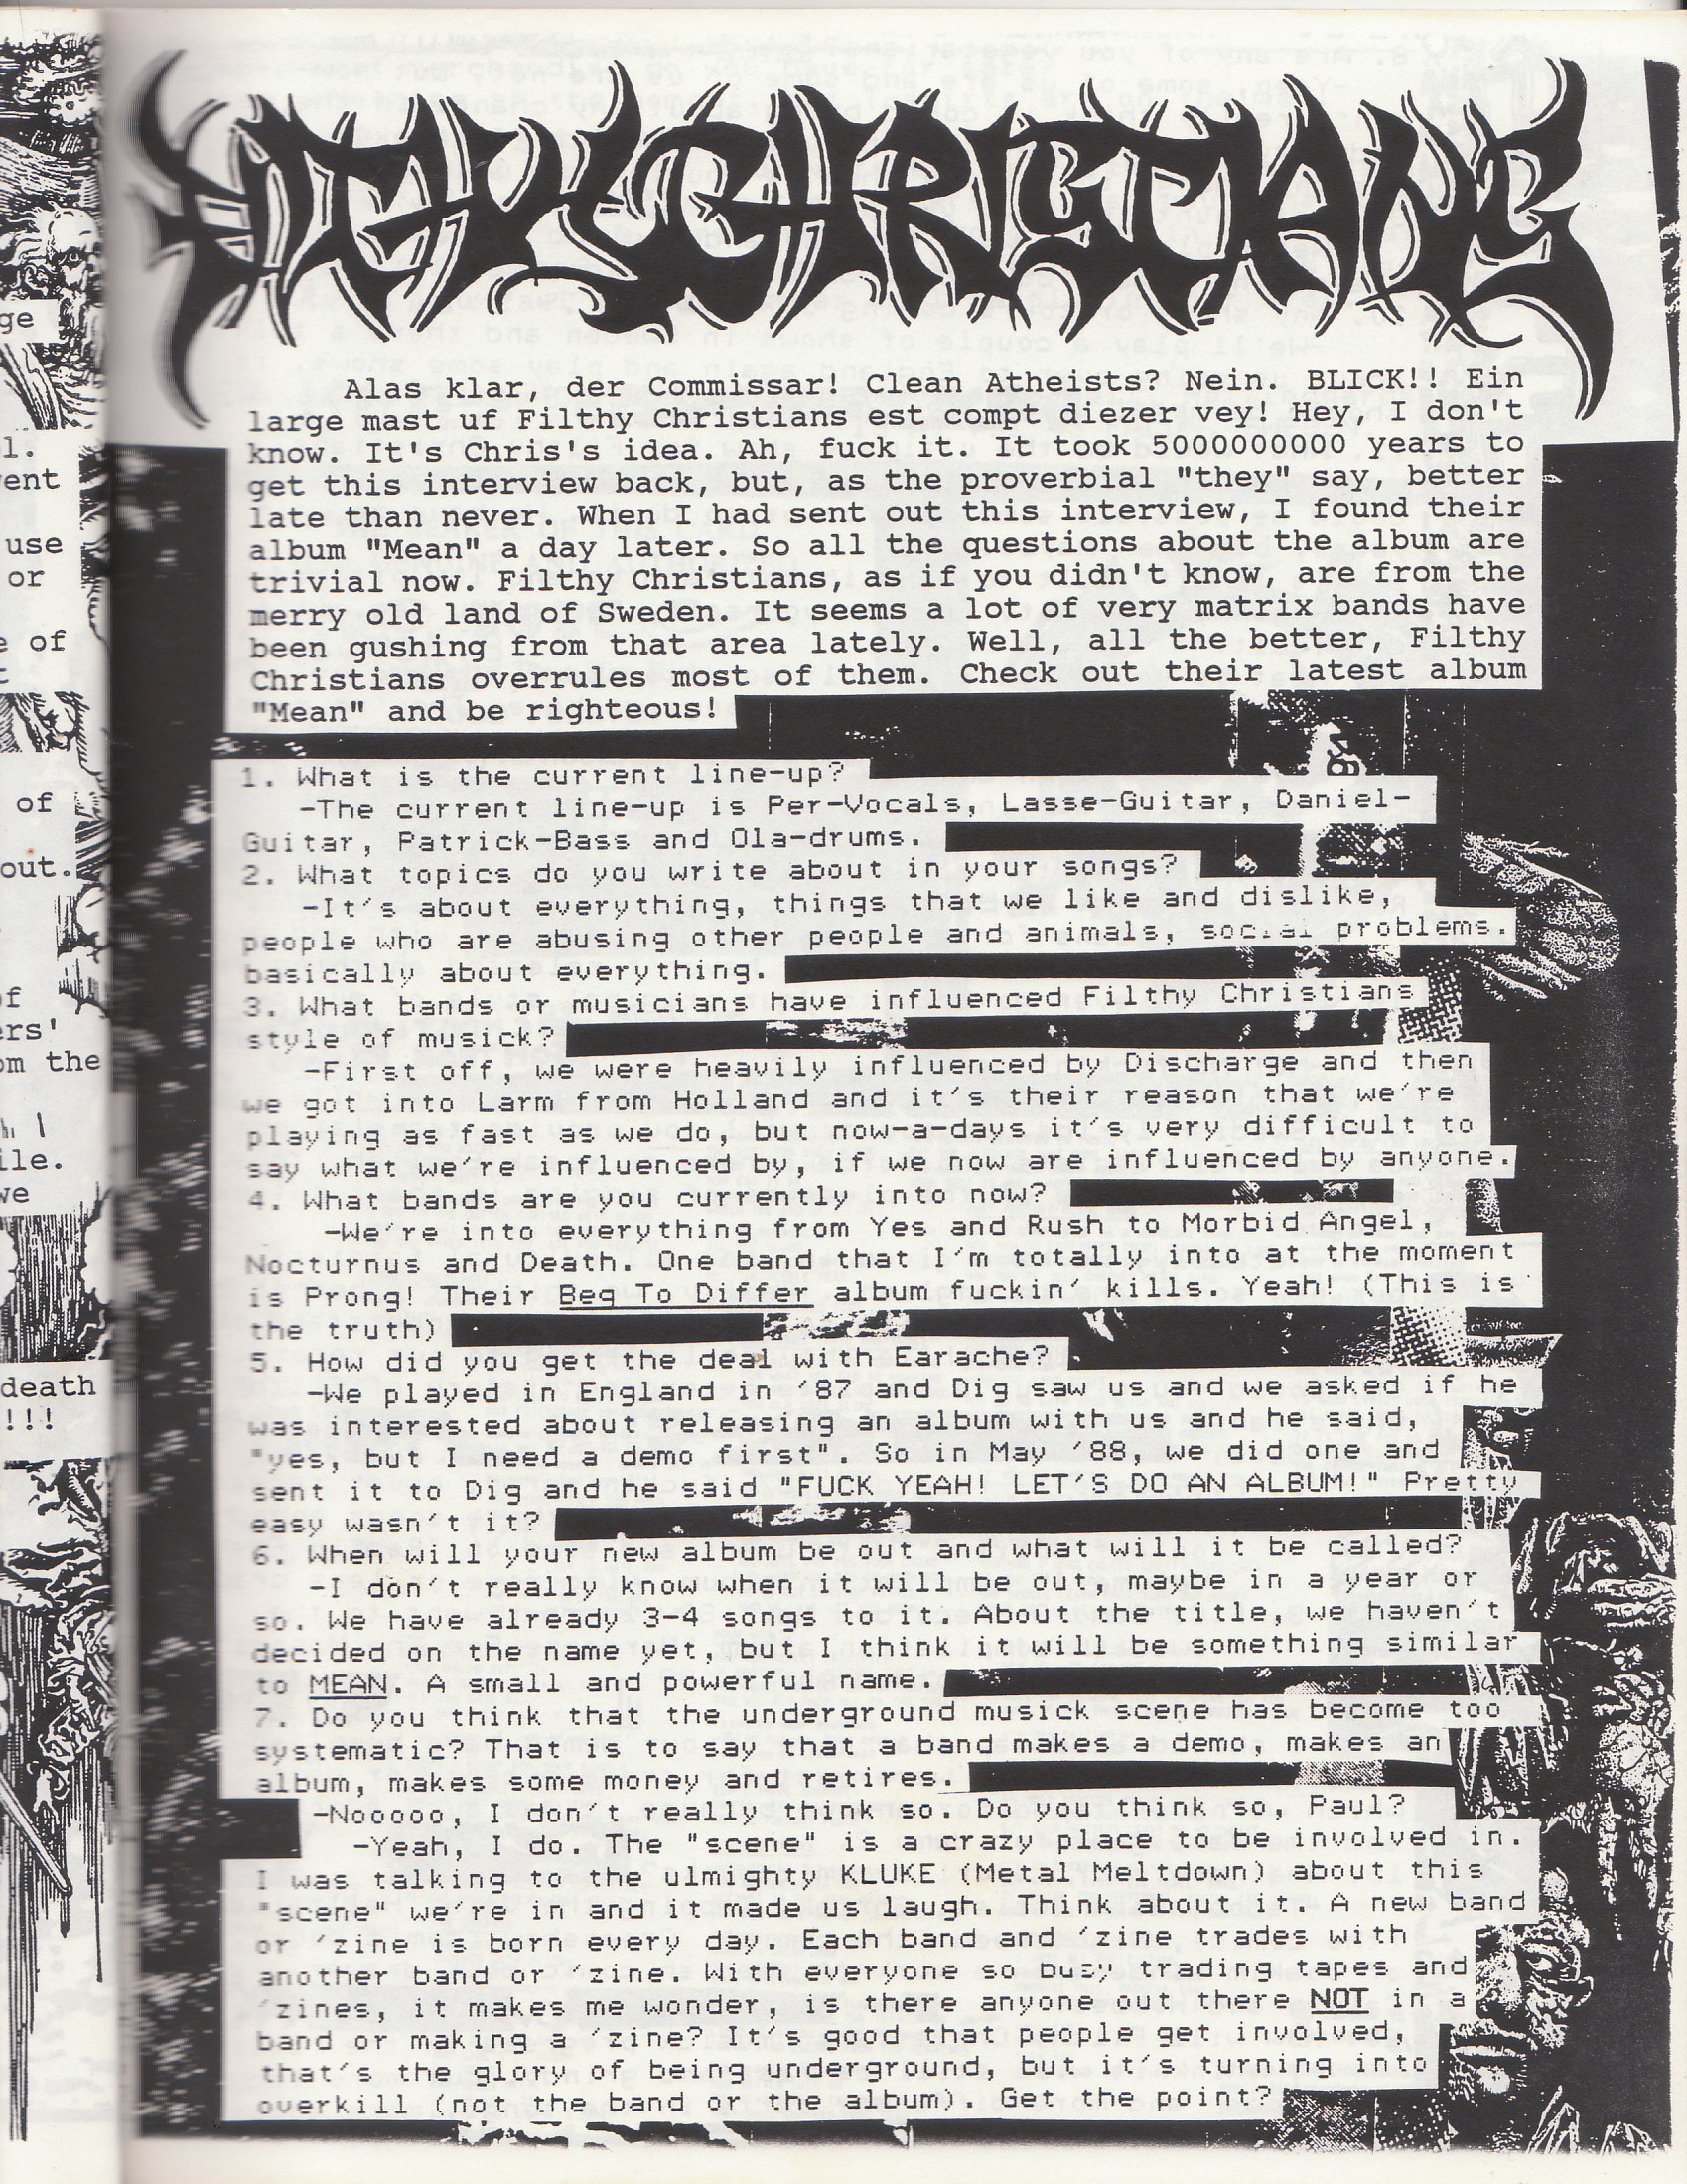 FILTHY CHRISTIANS
Alas klar, der Commissar! Clean Atheists? Nein. BLICK!! Ein
large mast uf Filthy Christians est compt diezer vey! Hey, I don't
know. It's Chris's idea. Ah, fuck it. It took 5000000000 years to
get this interview back, but, as the proverbial "they" say, better
late than never. When I had sent out this interview, I found their
album "Mean" a day later. So all the questions about the album are
trivial now. Filthy Christians, as if you didn't know, are from the
merry old land of Sweden. It seems a lot of very matrix bands have
been gushing from that area lately. Well, all the better, Filthy
Christians overrules most of them. Check out their latest album
"Mean" and be righteous!
1. What is the current line-up?
-The current line-up is Per-Vocals, Lasse-Guitar, Daniel-
Guitar, Patrick-Bass and Ola-drums.
2. What topics do you write about in your songs?
-It's about everything, things that we like and dislike,
people who are abusing other people and animals, social problems.
basically about everything.
3. What bands or musicians have influenced Filthy Christians
style of musick?
-First off, we were heavily influenced by Discharge and then
we got into Larm from Holland and it's their reason that we're
playing as fast as we do, but now-a-days it's very difficult to
say what we're influenced by, if we now are influenced by anyone.
4. What bands are you currently into now?
-We're into everything from Yes and Rush to Morbid Angel,
Nocturnus and Death. One band that I'm totally into at the moment
is Prong! Their Beg To Differ album fuckin' kills. Yeah! (This is
the truth)
5. How did you get the deal with Earache?
-We played in England in '87 and Dig saw us and we asked if he
was interested about releasing an album with us and he said,
"yes, but I need a demo first". So in May '88, we did one and
sent it to Dig and he said "FUCK YEAH! LET'S DO AN ALBUM!" Pretty
easy wasn't it?
6. When will your new album be out and what will it be called?
-I don't really know when it will be out, maybe in a year or
so. We have already 3-4 songs to it. About the title, we haven't
decided on the name yet, but I think it will be something similar
to MEAN. A small and powerful name.
7. Do you think that the underground musick scene has become too
systematic? That is to say that a band makes a demo, makes an
album, makes some money and retires.
-Nooooo, I don't really think so. Do you think so, Paul?
-Yeah, I do. The "scene" is a crazy place to be involved in.
I was talking to the ulmighty KLUKE (Metal Meltdown) about this
"scene" we're in and it made us laugh. Think about it. A new band
or 'zine is born every day. Each band and 'zine trades with
another band or 'zine. With everyone so busy trading tapes and
'zines, it makes me wonder, is there anyone out there NOT in a
band or making a 'zine? It's good that people get involved,
that's the glory of being underground, but it's turning into
overkill (not the band or the album). Get the point?
ge
use
or
of
of
out.
the
death
!!!